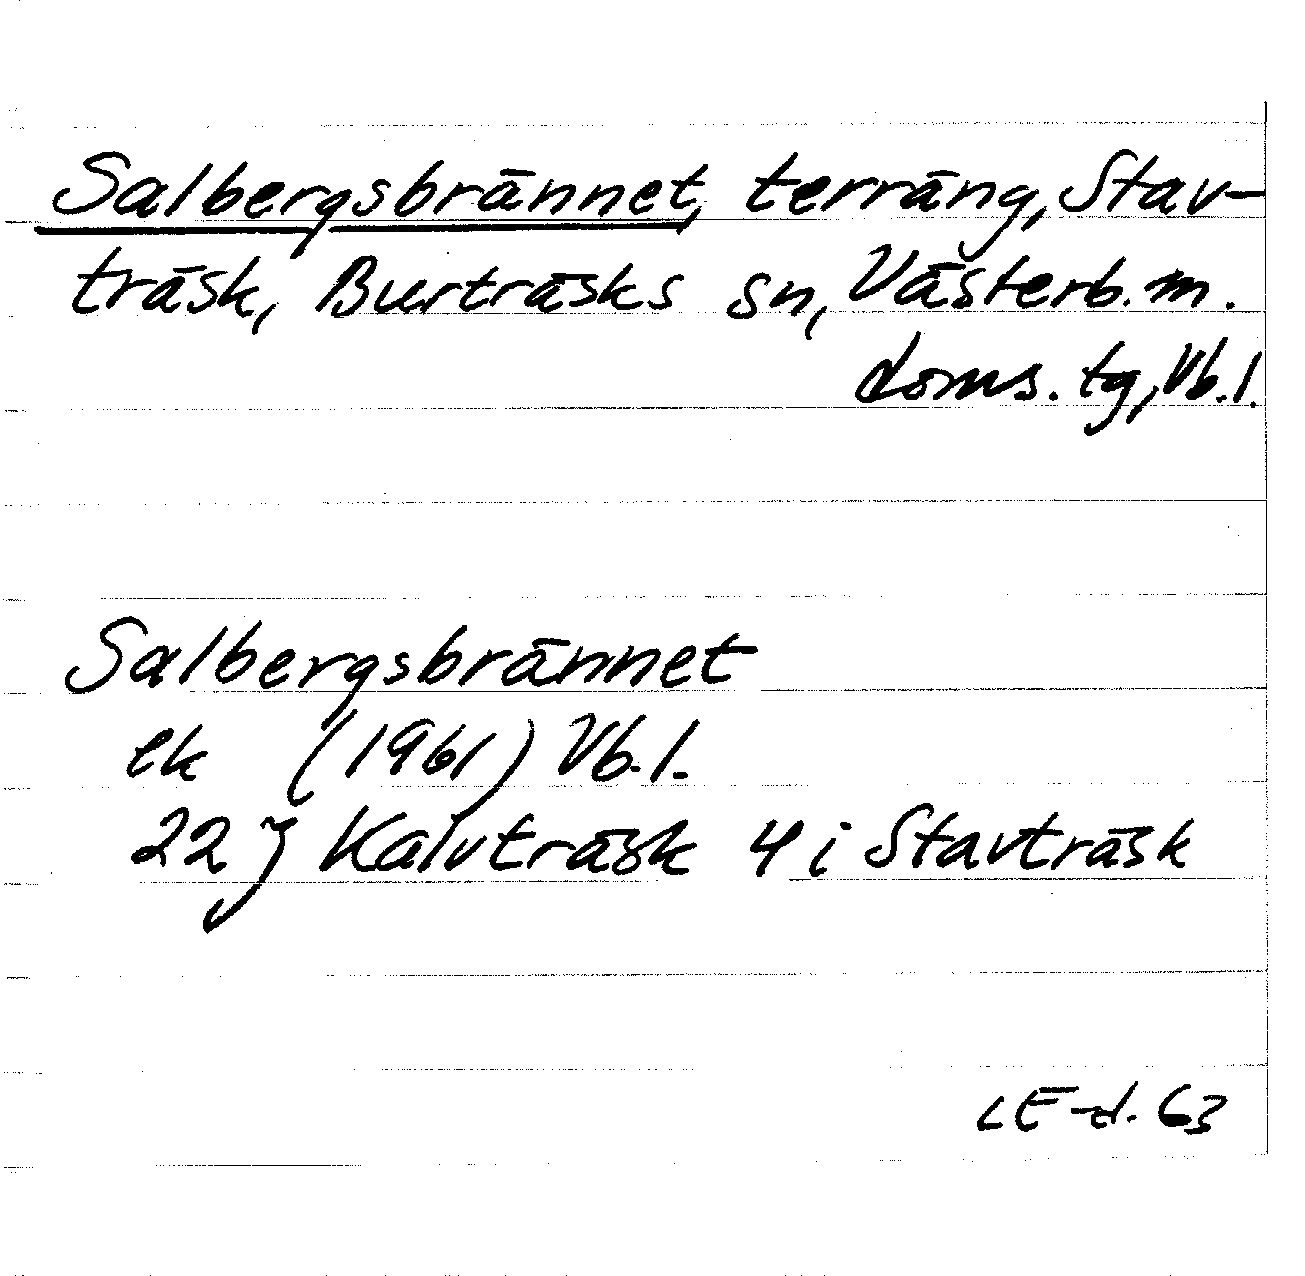 Salbergsbrännet, terräng, Stav-
träsk, Burträsks sn, Västerb. m.
doms. tg, Vb. l.
Salbergsbrännet
ek (1961) Vb. l.
22 J Kalvträsk 4 i Stavträsk
LE-d. 63